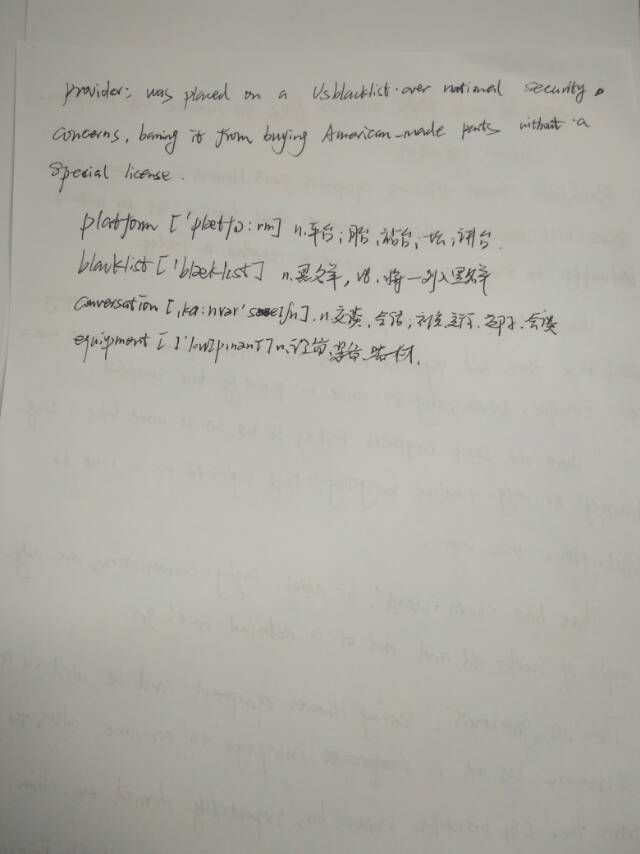 provider, was placed on a Us blacklist over national security
concerns, baning it from buying American-made parts without a
special license.
platform ['plætfɔ:rm] n.平台;月台,站台;坛;讲台.
blacklist ['blæklɪst] n.黑名单, vt.将…列入黑名单
conversation [,kɑ:nvər'seɪʃn].n.交谈,会话;社交,交往,会谈
equipment [ɪ'kwɪpmənt] n.设备,装备,器材.